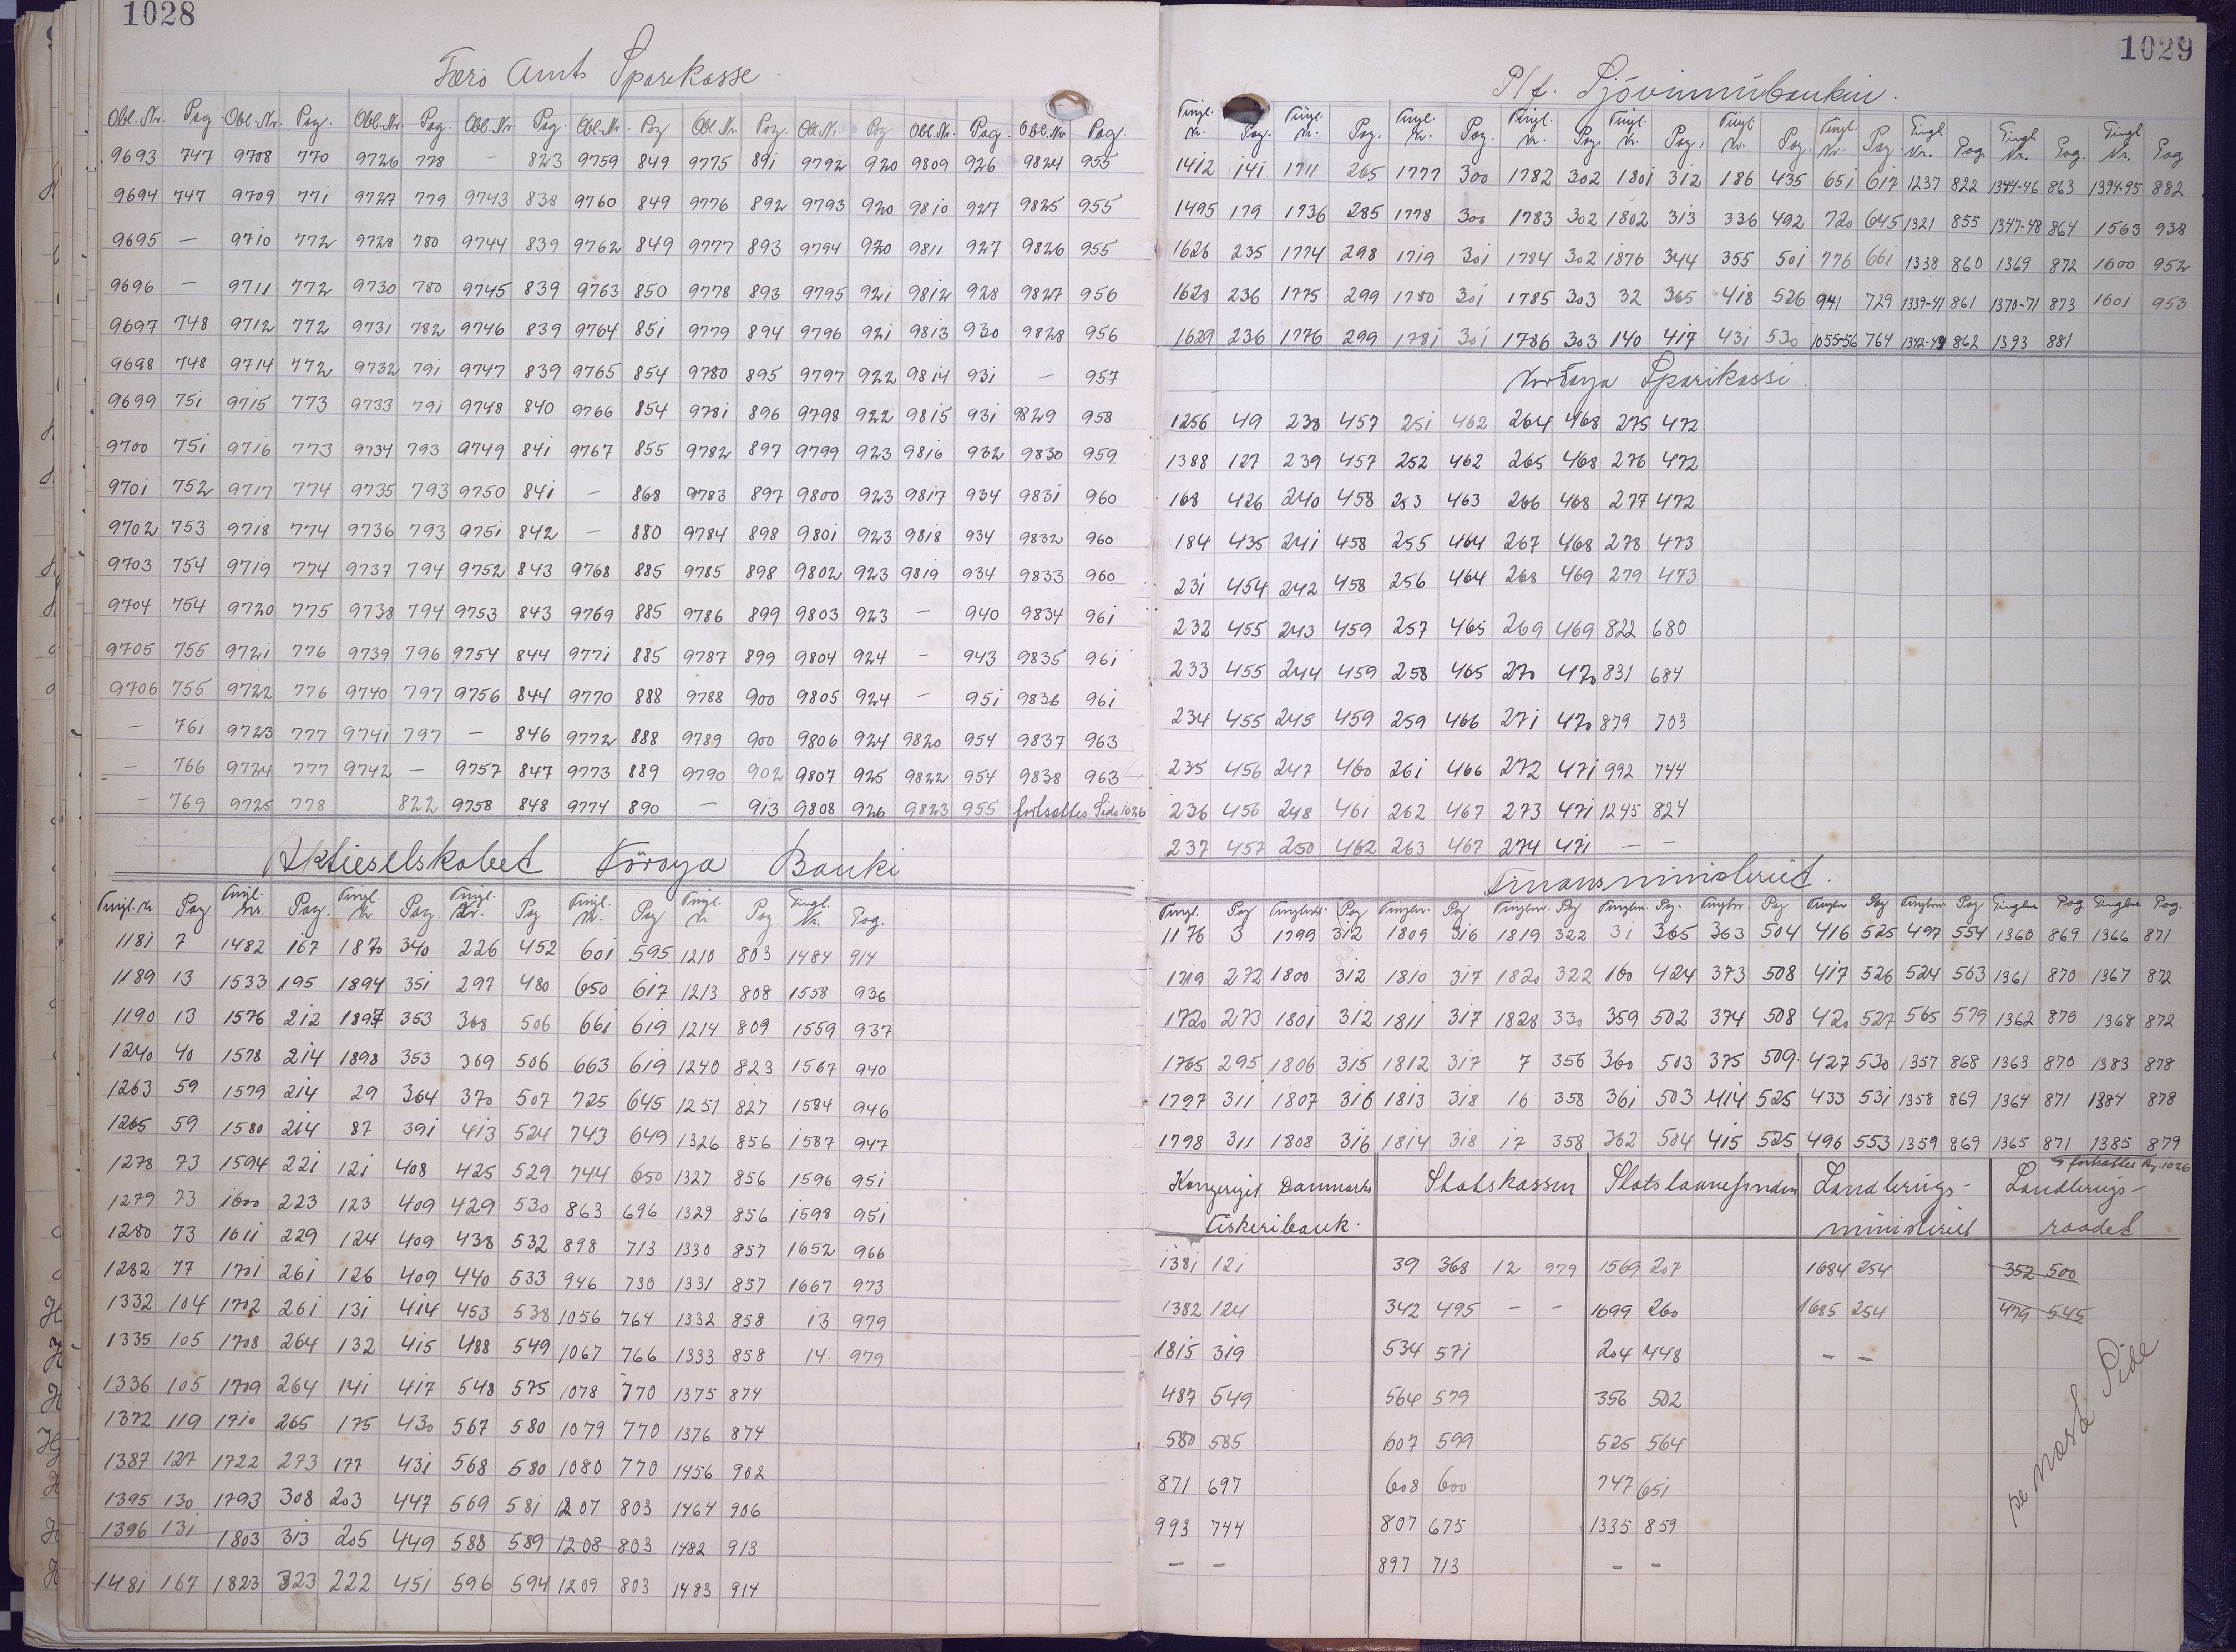 1028
Færö Amts Sparekasse.
Obl.Nr. Pag. Obl.Nr. Pag. Obl.Nr. Pag. Obl.Nr. Pag. Obl.Nr. Pag Obl.Nr. Pag. Obl.Nr. Pag Obl.Nr. Pag. Obl.Nr Pag.
9693 747 9708 770 9726 778 – 823 9759 849 9775 891 9792 920 9809 926 9824 955
9694 747 9709 771 9727 779 9743 838 9760 849 9776 892 9793 920 9810 927 9825 955
9695 – 9710 772 9728 780 9744 839 9762 849 9777 893 9794 920 9811 927 9826 955
9696 – 9711 772 9730 780 9745 839 9763 850 9778 893 9795 921 9812 928 9827 956
9697 748 9712 772 9731 782 9746 839 9764 851 9779 894 9796 921 9813 930 9828 956
9698 748 9714 772 9732 791 9747 839 9765 854 9780 895 9797 922 9814 931 – 957
9699 751 9715 773 9733 791 9748 840 9766 854 9781 896 9798 922 9815 931 9829 958
9700 751 9716 773 9734 793 9749 841 9767 855 9782 897 9799 923 9816 932 9830 959
9701 752 9717 774 9735 793 9750 841 – 868 9783 897 9800 923 9817 934 9831 960
9702 753 9718 774 9736 793 9751 842 – 880 9784 898 9801 923 9818 934 9832 960
9703 754 9719 774 9737 794 9752 843 9768 885 9785 898 9802 923 9819 934 9833 960
9704 754 9720 775 9738 794 9753 843 9769 885 9786 899 9803 923 – 940 9834 961
9705 755 9721 776 9739 796 9754 844 9771 885 9787 899 9804 924 – 943 9835 961
9706 755 9722 776 9740 797 9756 844 9770 888 9788 900 9805 924 – 951 9836 961
– 761 9723 777 9741 797 – 846 9772 888 9789 900 9806 924 9820 954 9837 963
– 766 9724 777 9742 – 9757 847 9773 889 9790 902 9807 925 9822 954 9838 963
– 769 9725 778 822 9758 848 9774 890 – 913 9808 926 9823 955 fortsættes Side 1026
Aktieselskabet Föroya Banki
Tingl.Nr Pag Tingl.Nr. Pag. Tingl.Nr Pag. Tingl.Nr. Pag Tingl.Nr. Pag Tingl.Nr. Pag Tingl.Nr. Pag.
1181 7 1482 167 1870 340 226 452 601 595 1210 803 1484 914
1189 13 1533 195 1894 351 297 480 650 617 1213 808 1558 936
1190 13 1576 212 1897 353 368 506 661 619 1214 809 1559 937
1240 40 1578 214 1898 353 369 506 663 619 1240 823 1567 940
1263 59 1579 214 29 364 370 507 725 645 1251 827 1584 946
1265 59 1580 214 87 391 413 524 743 649 1326 856 1587 947
1278 73 1594 221 121 408 425 529 744 650 1327 856 1596 951
1279 73 1600 223 123 409 429 530 863 696 1329 856 1598 951
1280 73 1611 229 124 409 438 532 898 713 1330 857 1652 966
1282 77 1701 261 126 409 440 533 946 730 1331 857 1667 973
1332 104 1702 261 131 414 453 538 1056 764 1332 858 13 979
1335 105 1708 264 132 415 488 549 1067 766 1333 858 14 979
1336 105 1709 264 141 417 548 575 1078 770 1375 874
1372 119 1710 265 175 430 567 580 1079 770 1376 874
1387 127 1722 273 177 431 568 580 1080 770 1456 902
1395 130 1793 308 203 447 569 581 1207 803 1464 906
1396 131 1803 313 205 449 588 589 1208 803 1482 913
1481 167 1823 323 222 451 596 594 1209 803 1483 914
1029
P/f. Sjóvinnubankin.
Tingl.Nr. Pag. Tingl.Nr. Pag. Tingl.Nr. Pag. Tingl.Nr. Pag. Tingl.Nr. Pag. Tingl.Nr. Pag. Tingl.Nr. Pag. Tingl.Nr. Pag. Tingl.Nr. Pag. Tingl.Nr. Pag
1412 141 1711 265 1777 300 1782 302 1801 312 186 435 651 617 1237 822 1344-46 863 1394-95 882
1495 179 1736 285 1778 300 1783 302 1802 313 336 492 720 645 1321 855 1347-48 864 1563 938
1626 235 1774 298 1719 301 1784 302 1876 344 355 501 776 661 1338 860 1369 872 1600 952
1628 236 1775 299 1780 301 1785 303 32 365 418 526 941 729 1339-41 861 1370-71 873 1601 953
1629 236 1776 299 1781 301 1786 303 140 417 431 530 1055-56 764 1342-43 862 1393 881
Nordoya Sparikassi.
1256 49 238 457 251 462 264 468 275 472
1388 127 239 457 252 462 265 468 276 472
168 426 240 458 253 463 266 468 277 472
184 435 241 458 255 464 267 468 278 473
231 454 242 458 256 464 268 469 279 473
232 455 243 459 257 465 269 469 822 680
233 455 244 459 258 465 270 470 831 684
234 455 245 459 259 466 271 470 879 703
235 456 247 460 261 466 272 471 992 744
236 456 248 461 262 467 273 471 1245 824
237 457 250 462 263 467 274 471 – –
Finansministeriet.
Tingl. Pag Tinglnr. Pag Tinglnr. Pag Tinglnr. Pag Tinglnr. Pag. Tinglnr. Pag Tinglnr Pag Tinglnr Pag Tinglnr Pag Tinglnr Pag.
1176 3 1799 312 1809 316 1819 322 31 365 363 504 416 525 497 554 1360 869 1366 871
1719 272 1800 312 1810 317 1820 322 160 424 373 508 417 526 524 563 1361 870 1367 872
1720 273 1801 312 1811 317 1828 330 359 502 374 508 420 527 565 579 1362 870 1368 872
1765 295 1806 315 1812 317 7 356 360 503 375 509 427 530 1357 868 1363 870 1383 878
1797 311 1807 316 1813 318 16 358 361 503 414 525 433 531 1358 869 1364 871 1384 878
1798 311 1808 316 1814 318 17 358 362 504 415 525 496 553 1359 869 1365 871 1385 879
fortsættes Pag. 1026
Kongeriget Danmarks Statskassen Statslaanefonden Landbrugs- Landbrugs-
Fiskeribank. ministeriet raadet
1381 121 39 368 12 979 1569 207 1684 254 352 500
1382 124 342 495 – – 1699 260 1685 254 479 545
1815 319 534 571 204 448 – –
487 549 564 579 356 502
580 585 607 599 525 564
871 697 608 600 747 651
993 744 807 675 1335 859
– – 897 713 – –
se næste Side